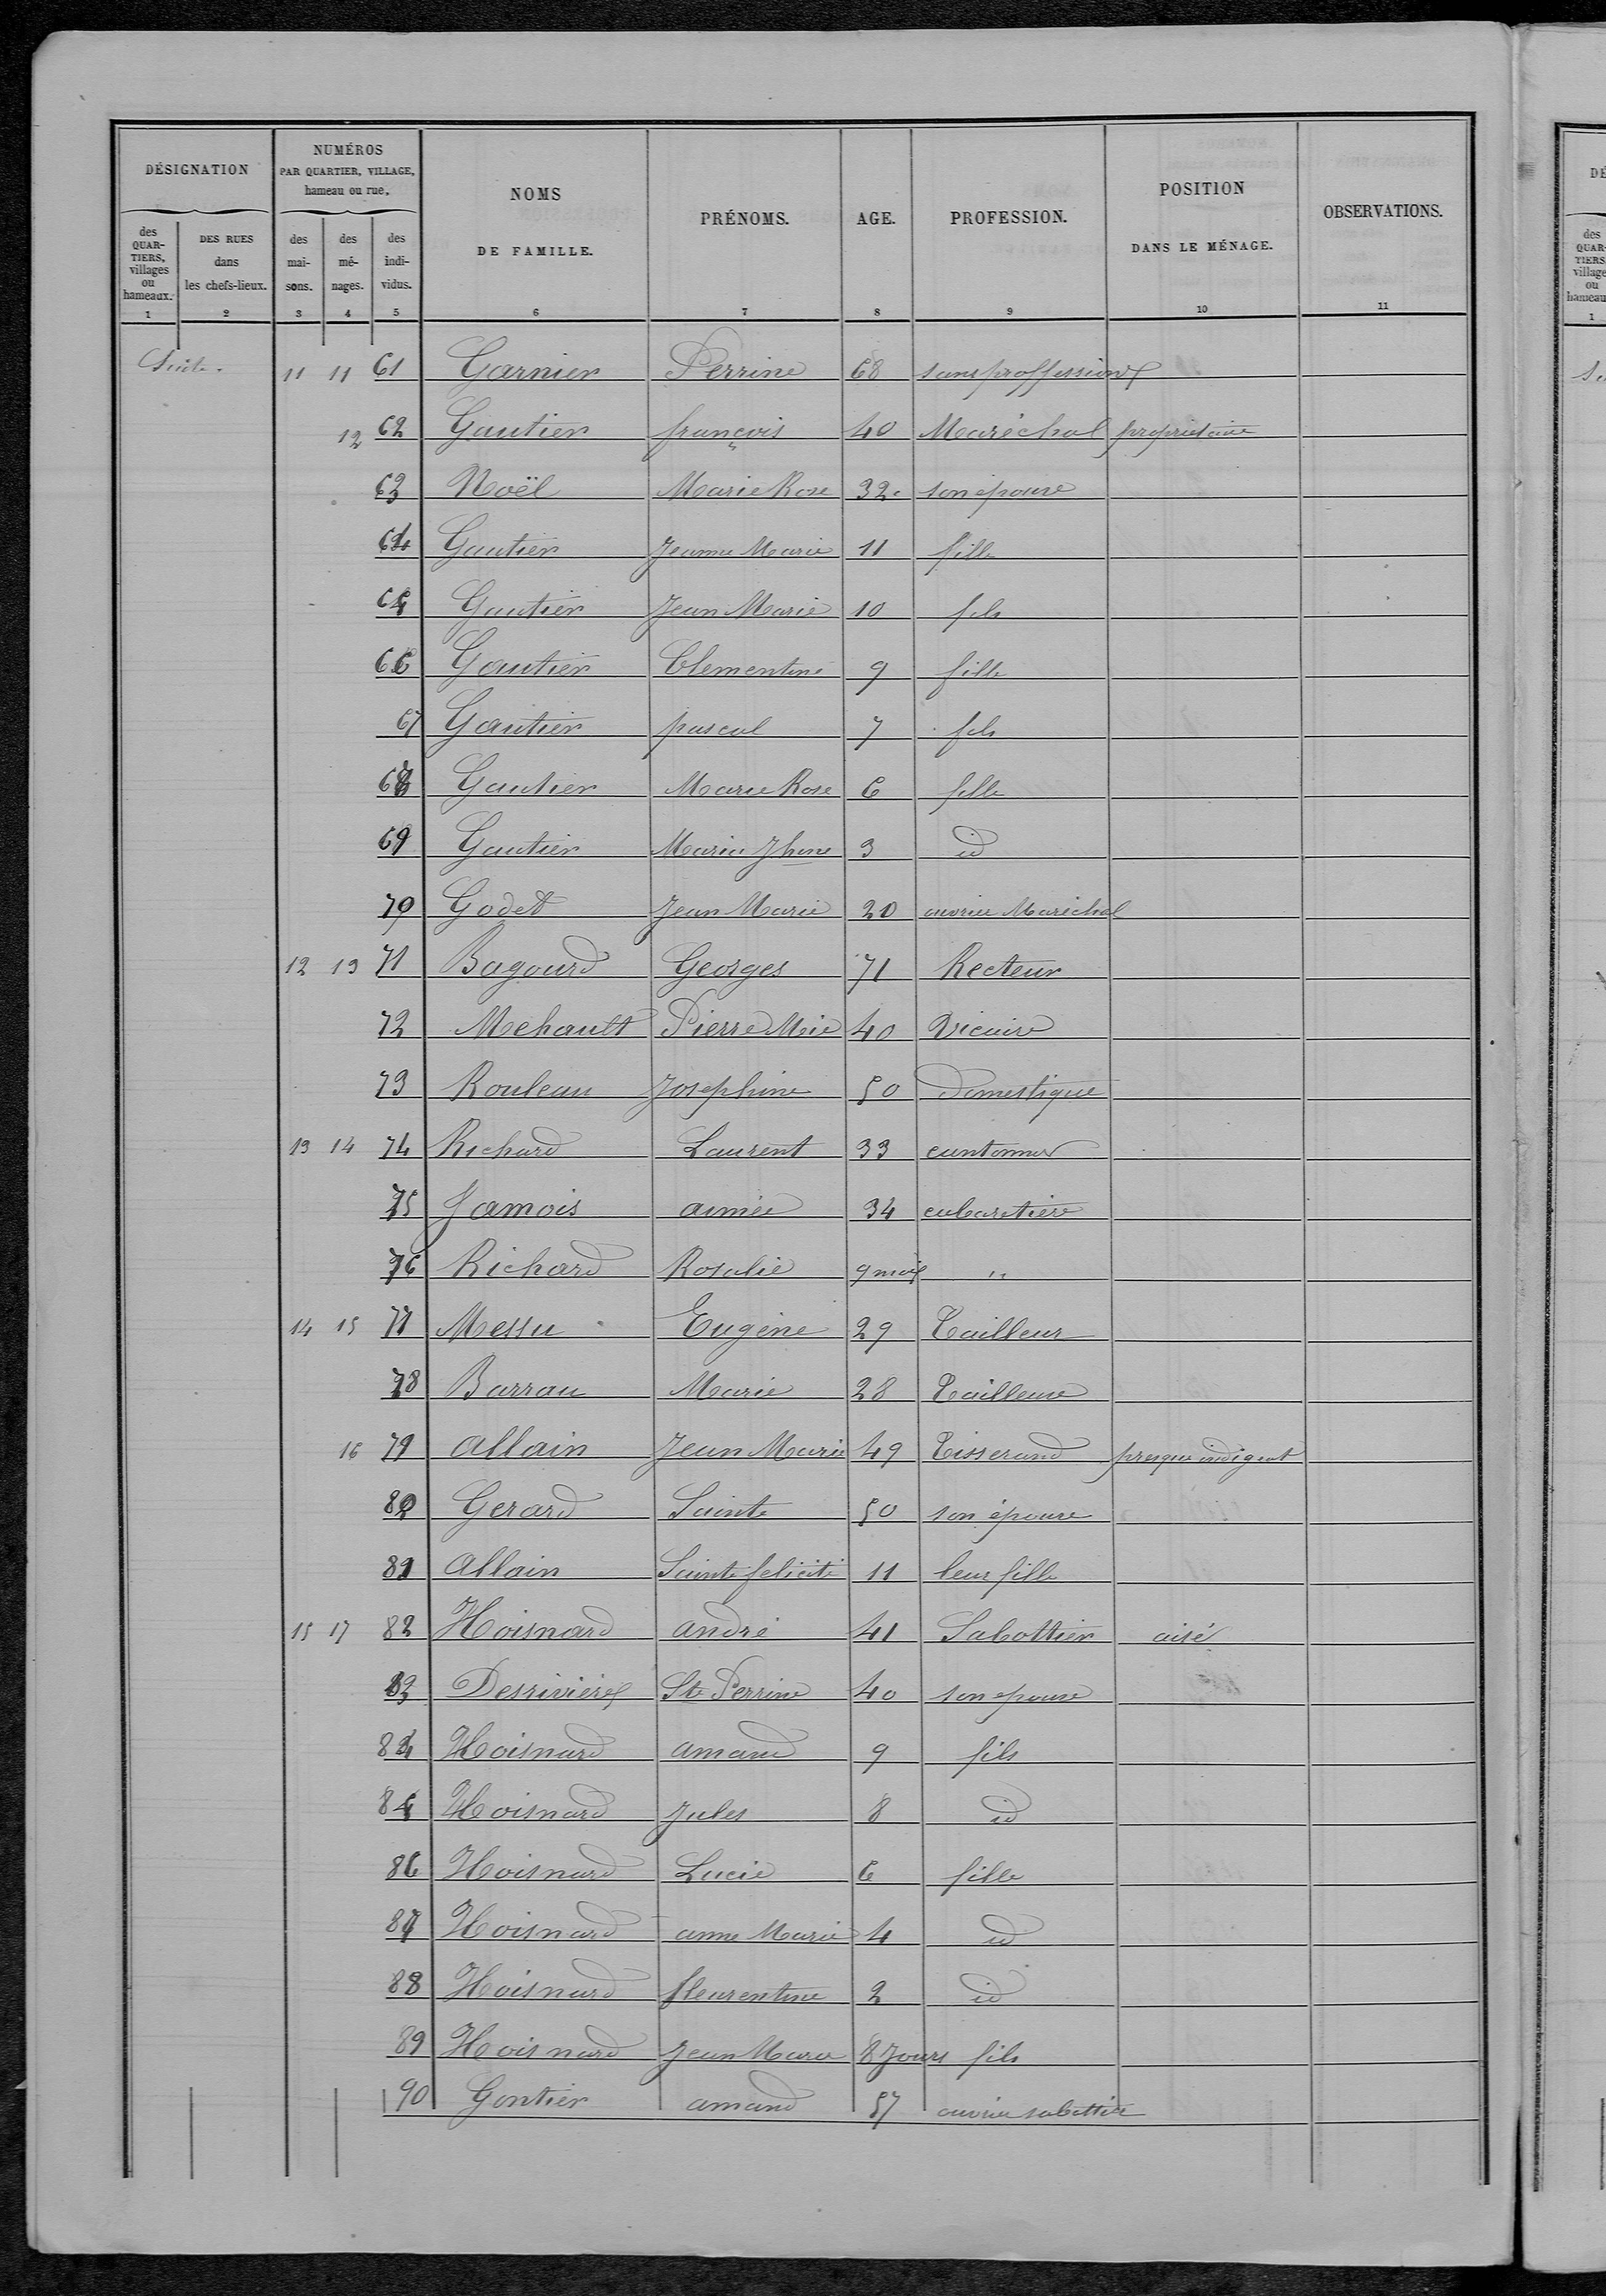 DÉSIGNATION
NUMÉROS
PAR QUARTIER, VILLAGE,
hameau ou rue.
NOMS
DE FAMILLE.
PRÉNOMS.
AGE.
PROFESSION.
POSITION
DANS LE MÉNAGE.
OBSERVATIONS.
des QUAR-TIERS, villages ou hameaux.
DES RUES dans les chefs-lieux.
des mai-sons.
des mé-nages.
des indi-vidus.
1 2 3 4 5 6 7 8 9 10 11
Suite. 11 11 61 Garnier Perrine 68 sans proffessions
12 62 Gautier françois 40 Maréchal proprietaire
63 Noël Marie Rose 32 son épouse
64 Gautier Jeanne Marie 11 fille
65 Gautier Jean Marie 10 fils
66 Gautier Clementine 9 fille
67 Gautier pascal 7 fils
68 Gautier Marie Rose 6 fille
69 Gautier Marie Jhine 3 id
70 Godet Jean Marie 20 ouvrier Maréchal
12 13 71 Bagourd Georges 71 Recteur
72 Mehault Pierre Mie 40 Vicaire
73 Rouleau Josephine 50 domestique
13 14 74 Richard Laurent 33 cantonnier
75 Jamois aimée 34 cabaretière
76 Richard Rosalie 9 mois "
14 15 77 Messu Eugène 29 Tailleur
78 Barrau Marie 28 Tailleuse
16 79 Allain Jean Marie 49 Tisserand presque indigent
80 Gerard Sainte 50 son épouse
81 Allain Sainte felicité 11 leur fille
15 17 82 Hoisnard andré 41 Sabottier aisé
83 Desrivières Ste Perrine 40 son epouse
84 Hoisnard amand 9 fils
85 Hoisnard Jules 8 id
86 Hoisnard Lucie 6 fille
87 Hoisnard anne Marie 4 id
88 Hoisnard fleurentine 2 id
89 Hoisnard Jean Marie 8 Jours fils
90 Gontier amand 57 ouvrier sabottier